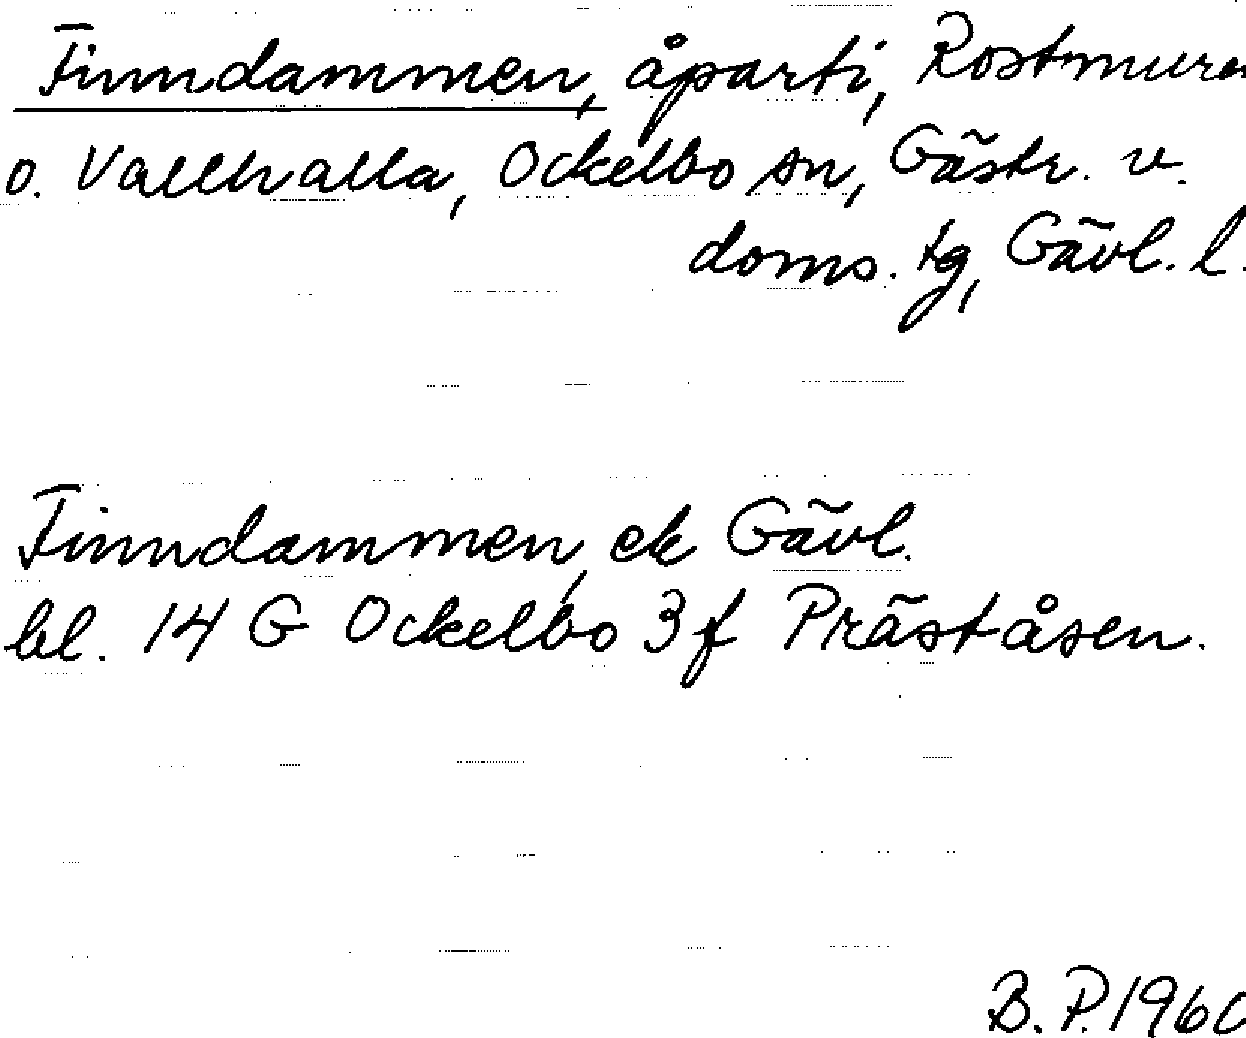 Finndammen, åparti, Rostmuren
o. Vallhalla, Ockelbo sn, Gästr. v.
doms. tg, Gävl. l.
Finndammen, ek Gävl.
bl. 14 G Ockelbo 3 f Präståsen.
B.P. 1960